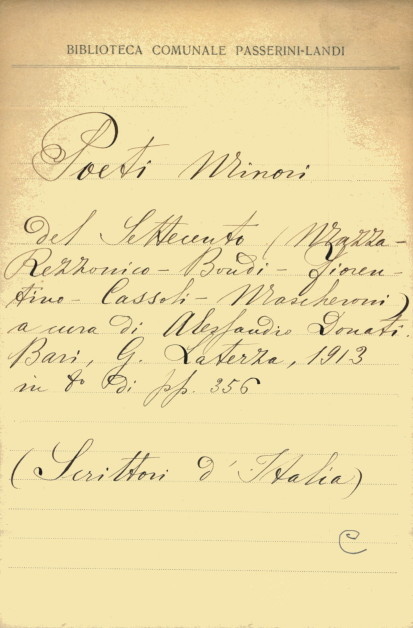 BIBLIOTECA COMUNALE PASSERINI-LANDI
Poeti Minori
del Settecento (Mazza-
Rezzonico - Bondi - Fioren-
tino - Cassoli - Mascheroni)
a cura di Alessandro Donati.
Bari, G. Laterza, 1913
in 8° di pp. 356
(Scrittori d'Italia)
C